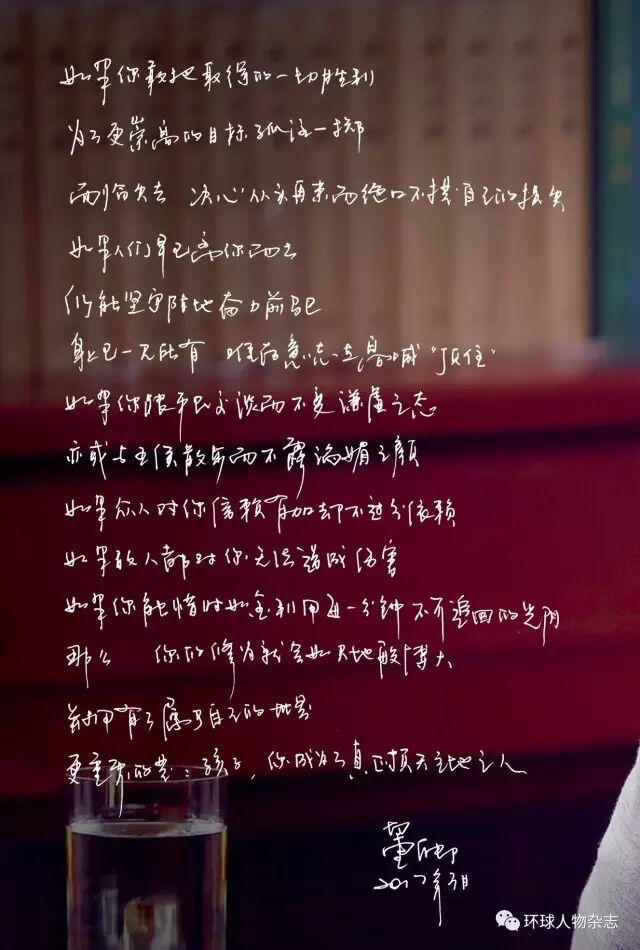 如果你敢把取得的一切胜利
为了更崇高的目标孤注一掷
面临失去 决心从头再来而绝口不提自己的损失
如果人们早已离你而去
仍能坚守阵地奋力前驱
身上已一无所有 唯存意志在高喊“顶住”
如果你跟平民交谈而不变谦虚之态
亦或与王侯散步而不露谄媚之颜
如果众人对你信赖有加却不过分依赖
如果敌人都对你无法造成伤害
如果你能惜时如金利用每一分钟不可追回的光阴
那么 你的修为就会如天地般博大
并拥有了属于自己的世界
更重要的是：孩子，你成为了真正顶天立地之人
董卿
2017年
环球人物杂志